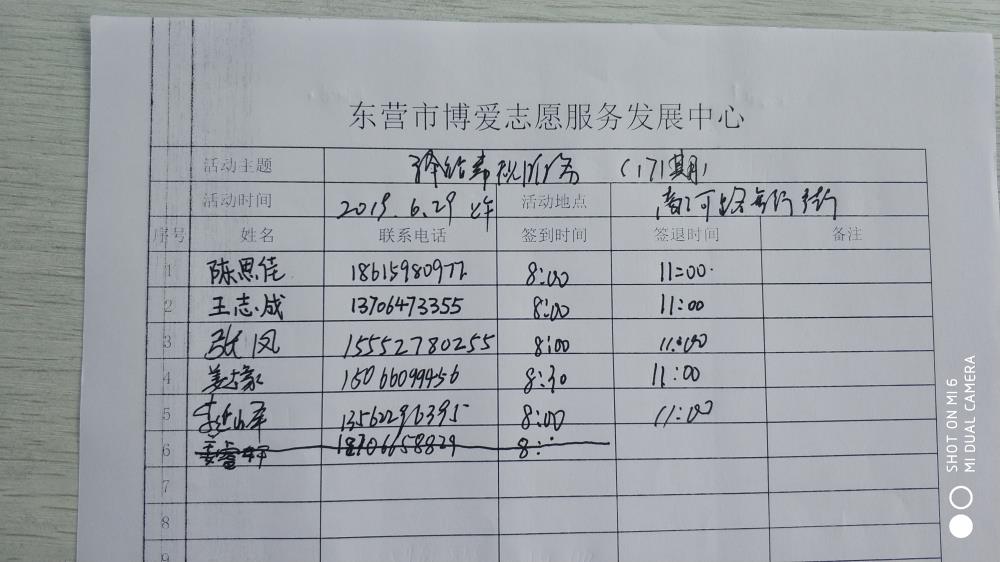 东营市博爱志愿服务发展中心
活动主题 (171期)
活动时间 2019.6.29 上午 活动地点 商河路步行街
序号 姓名 联系电话 签到时间 签退时间 备注
1 陈思佳 18615980977 8:00 11:00
2 王志成 13706473355 8:00 11:00
3 张凤 15552780255 8:00 11:00
4 姜 15066099456 8:30 11:00
5 13562296395 8:00 11:00
6 18706658829 8:
7
8
9
SHOT ON MI 6
MI DUAL CAMERA